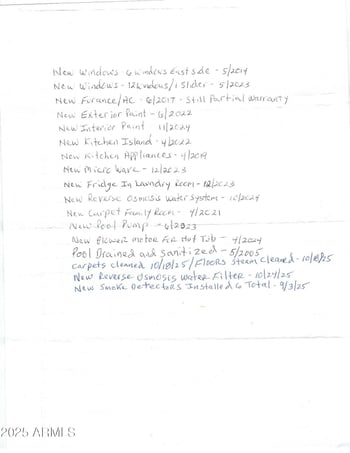 New Windows - 6 windows East side - 5/2019
New Windows - 12 Windows / 1 Slider - 5/2023
New Furance/AC - 6/2017 - Still Partial Warranty
New Exterior Paint - 6/2022
New Interior Paint 11/2024
New Kitchen Island - 4/2022
New Kitchen Appliances - 4/2019
New Microwave - 12/2023
New Fridge In Laundry Room - 12/2023
New Reverse Osmosis Water System - 10/2024
New Carpet Family Room - 4/2021
New Pool Pump - 6/2023
New Blower motor For Hot Tub - 4/2024
Pool Drained and Sanitized - 5/2005
Carpets cleaned 10/18/25 / Floors steam cleaned - 10/8/25
New Reverse Osmosis Water Filter - 10/27/25
New Smoke Detectors Installed 6 Total - 9/3/25
2025 ARMLS